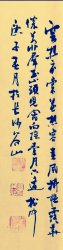 雲想衣裳花想容春風拂檻露華
濃若非群玉山頭見會向瑤臺月下逢
庚子月於長沙山